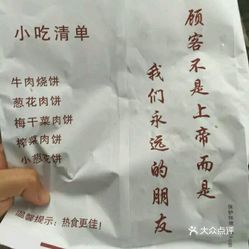 小吃清单
牛肉烧饼
葱花肉饼
梅干菜肉饼
榨菜肉饼
小葱饼
温馨提示：热食更佳！
顾客不是上帝而是
我们永远的朋友
大众点评